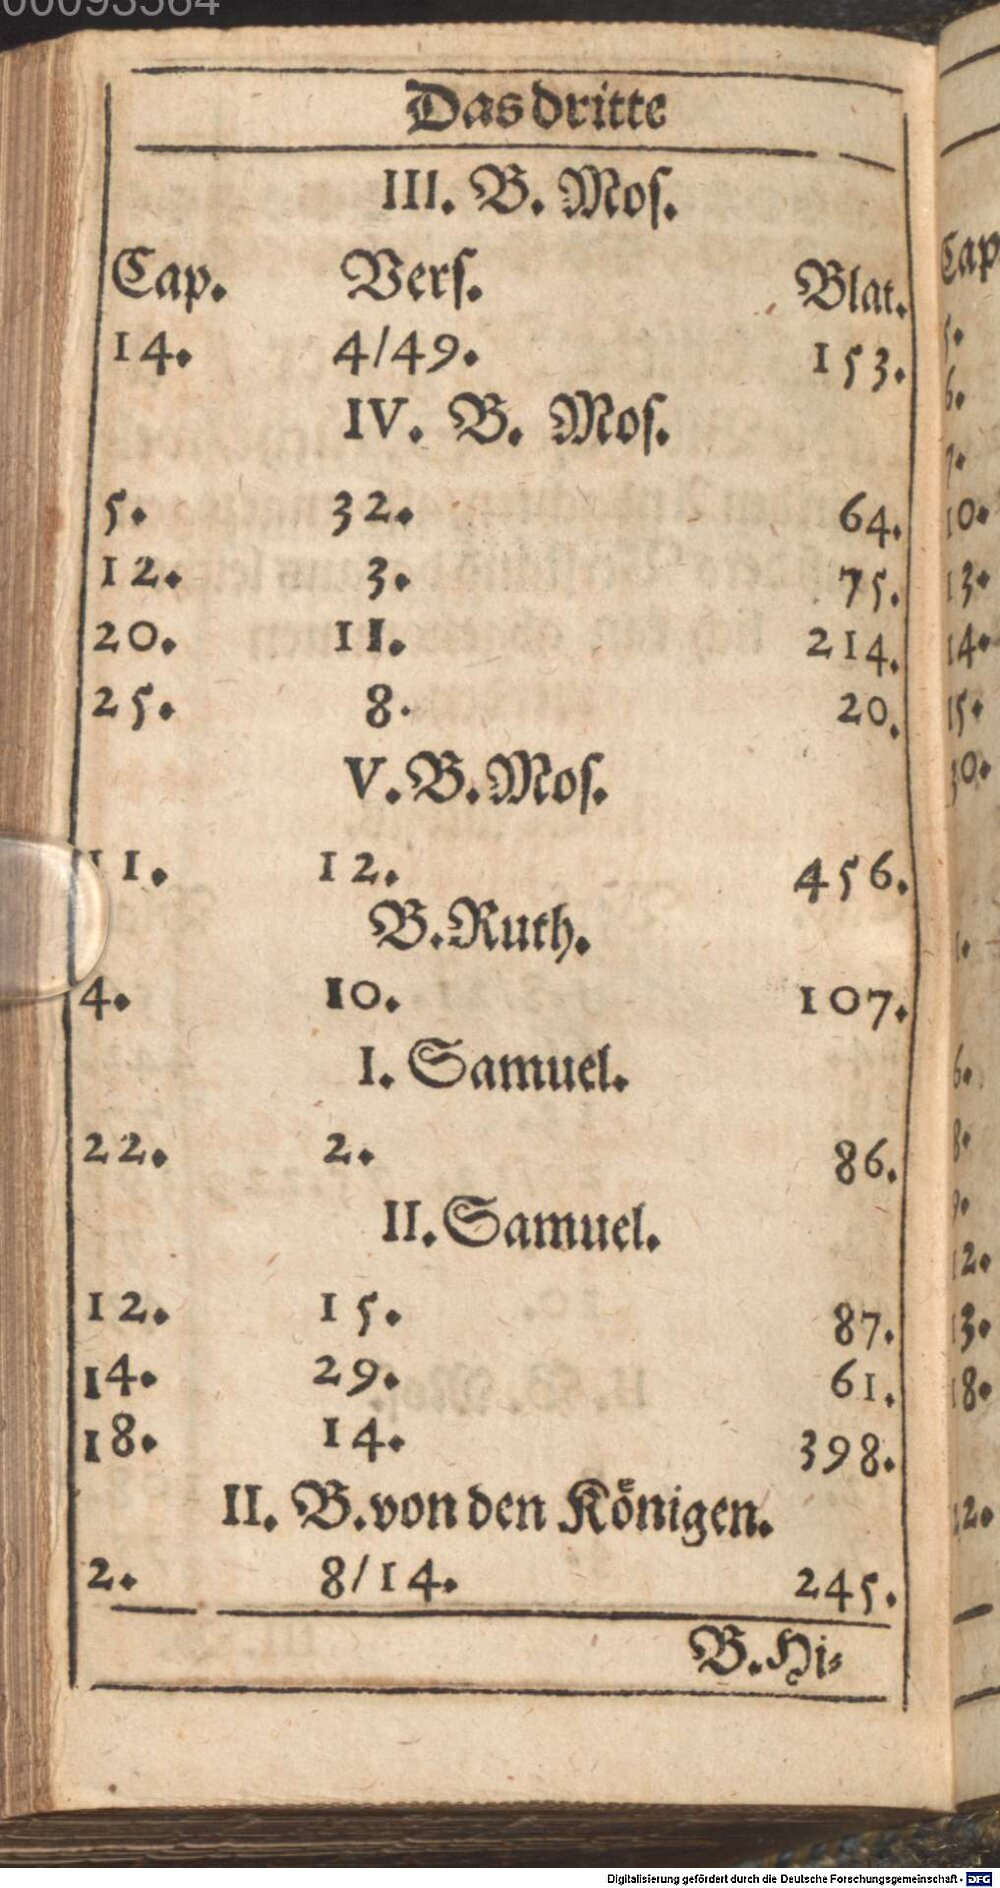 00093564
Das dritte
III. B. Moſ.
Cap. Verſ. Blat.
14. 4/49. 153.
IV. B. Moſ.
5. 32. 64.
12. 3. 75.
20. 11. 214.
25. 8. 20.
V. B. Moſ.
11. 12. 456.
B. Ruth.
4. 10. 107.
I. Samuel.
22. 2. 86.
II. Samuel.
12. 15. 87.
14. 29. 61.
18. 14. 398.
II. B. von den Koͤnigen.
2. 8/14. 245.
B. Hi⸗
Cap.
10.
13.
14.
15.
30.
12.
13.
18.
Digitalisierung gefördert durch die Deutsche Forschungsgemeinschaft - DFG